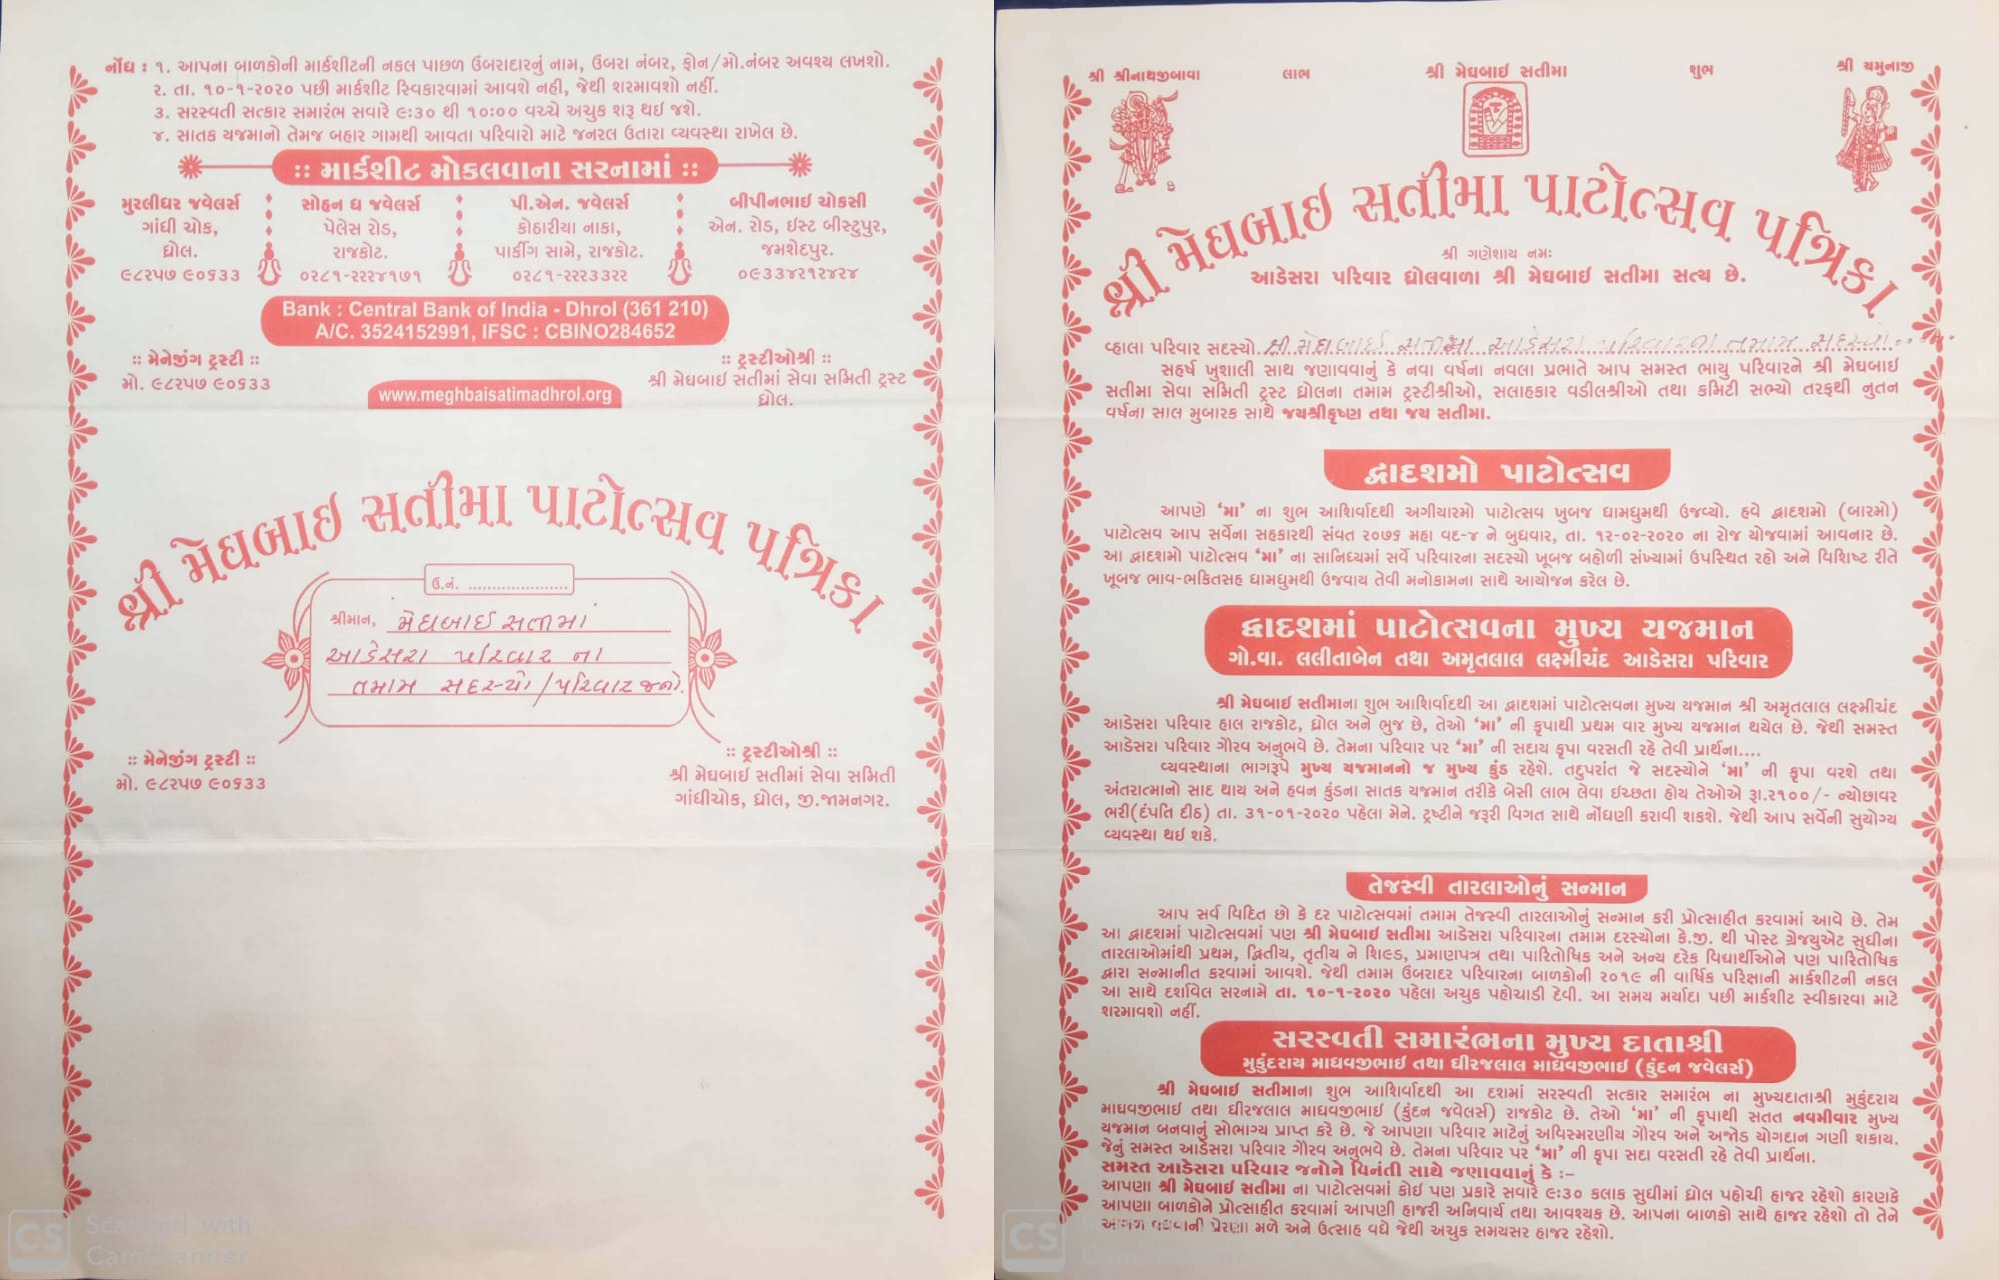 નોંધ : ૧. આપના બાળકોની માર્કશીટની નકલ પાછળ ઉંબરાદારનું નામ, ઉંબરા નંબર, ફોન/મો.નંબર અવશ્ય લખશો.
૨. તા. ૧૦-૧-૨૦૨૦ પછી માર્કશીટ સ્વિકારવામાં આવશે નહી, જેથી શરમાવશો નહીં.
૩. સરસ્વતી સત્કાર સમારંભ સવારે ૯:૩૦ થી ૧૦:૦૦ વચ્ચે અચુક શરૂ થઈ જશે.
૪. સાતક યજમાનો તેમજ બહાર ગામથી આવતા પરિવારો માટે જનરલ ઉતારા વ્યવસ્થા રાખેલ છે.
:: માર્કશીટ મોકલવાના સરનામાં ::
મુરલીધર જવેલર્સ
ગાંધી ચોક,
ધ્રોલ.
૯૮૨૫૭ ૯૦૬૩૩
સોહન ધ જવેલર્સ
પેલેસ રોડ,
રાજકોટ.
૦૨૮૧-૨૨૨૪૧૭૧
પી.એન. જવેલર્સ
કોઠારીયા નાકા,
પાર્કીંગ સામે, રાજકોટ.
૦૨૮૧-૨૨૨૩૩૨૨
બીપીનભાઈ ચોકસી
એન. રોડ, ઈસ્ટ બીસ્ટુપુર,
જમશેદપુર.
૦૯૩૩૪૨૧૨૪૨૪
Bank : Central Bank of India - Dhrol (361 210)
A/C. 3524152991, IFSC : CBINO284652
:: મેનેજીંગ ટ્રસ્ટી ::
મો. ૯૮૨૫૭ ૯૦૬૩૩
www.meghbaisatimadhrol.org
:: ટ્રસ્ટીઓશ્રી ::
શ્રી મેઘબાઈ સતીમાં સેવા સમિતી ટ્રસ્ટ
ધ્રોલ.
શ્રી મેઘબાઇ સતીમા પાટોત્સવ પત્રિકા
ઉ.નં. ....................
શ્રીમાન, મેઘબાઈ સતીમાં
આડેસરા પરિવાર ના
તમામ સદસ્યો/પરિવારજનો.
:: મેનેજીંગ ટ્રસ્ટી ::
મો. ૯૮૨૫૭ ૯૦૬૩૩
:: ટ્રસ્ટીઓશ્રી ::
શ્રી મેઘબાઈ સતીમાં સેવા સમિતી
ગાંધીચોક, ધ્રોલ, જી.જામનગર.
CS Scanned with
CamScanner
શ્રી શ્રીનાથજીબાવા લાભ શ્રી મેઘબાઈ સતીમા શુભ શ્રી યમુનાજી
શ્રી મેઘબાઇ સતીમા પાટોત્સવ પત્રિકા
શ્રી ગણેશાય નમઃ
આડેસરા પરિવાર ધ્રોલવાળા શ્રી મેઘબાઈ સતીમા સત્ય છે.
વ્હાલા પરિવાર સદસ્યો શ્રી મેઘબાઈ સતીમાં આડેસરા પરિવારના તમામ સદસ્યો
સહર્ષ ખુશાલી સાથ જણાવવાનું કે નવા વર્ષના નવલા પ્રભાતે આપ સમસ્ત ભાયુ પરિવારને શ્રી મેઘબાઈ
સતીમા સેવા સમિતી ટ્રસ્ટ ધ્રોલના તમામ ટ્રસ્ટીશ્રીઓ, સલાહકાર વડીલશ્રીઓ તથા કમિટી સભ્યો તરફથી નુતન
વર્ષના સાલ મુબારક સાથે જયશ્રીકૃષ્ણ તથા જય સતીમા.
દ્વાદશમો પાટોત્સવ
આપણે ‘મા’ ના શુભ આશિર્વાદથી અગીયારમો પાટોત્સવ ખુબજ ધામધુમથી ઉજવ્યો. હવે દ્વાદશમો (બારમો)
પાટોત્સવ આપ સર્વેના સહકારથી સંવત ૨૦૭૬ મહા વદ-૪ ને બુધવાર, તા. ૧૨-૦૨-૨૦૨૦ ના રોજ યોજવામાં આવનાર છે.
આ દ્વાદશમો પાટોત્સવ ‘મા’ ના સાનિધ્યમાં સર્વે પરિવારના સદસ્યો ખૂબજ બહોળી સંખ્યામાં ઉપસ્થિત રહો અને વિશિષ્ટ રીતે
ખૂબજ ભાવ-ભકિતસહ ધામધુમથી ઉજવાય તેવી મનોકામના સાથે આયોજન કરેલ છે.
દ્વાદશમાં પાટોત્સવના મુખ્ય યજમાન
ગો.વા. લલીતાબેન તથા અમૃતલાલ લક્ષ્મીચંદ આડેસરા પરિવાર
શ્રી મેઘબાઈ સતીમાના શુભ આશિર્વાદથી આ દ્વાદશમાં પાટોત્સવના મુખ્ય યજમાન શ્રી અમૃતલાલ લક્ષ્મીચંદ
આડેસરા પરિવાર હાલ રાજકોટ, ધ્રોલ અને ભુજ છે, તેઓ ‘મા’ ની કૃપાથી પ્રથમ વાર મુખ્ય યજમાન થયેલ છે. જેથી સમસ્ત
આડેસરા પરિવાર ગૌરવ અનુભવે છે. તેમના પરિવાર પર ‘મા’ ની સદાય કૃપા વરસતી રહે તેવી પ્રાર્થના....
વ્યવસ્થાના ભાગરૂપે મુખ્ય યજમાનનો જ મુખ્ય કુંડ રહેશે. તદુપરાંત જે સદસ્યોને ‘મા’ ની કૃપા વરશે તથા
અંતરાત્માનો સાદ થાય અને હવન કુંડના સાતક યજમાન તરીકે બેસી લાભ લેવા ઈચ્છતા હોય તેઓએ રૂા.૨૧૦૦/- ન્યોછાવર
ભરી(દંપતિ દીઠ) તા. ૩૧-૦૧-૨૦૨૦ પહેલા મેને. ટ્રષ્ટીને જરૂરી વિગત સાથે નોંધણી કરાવી શકશે. જેથી આપ સર્વેની સુયોગ્ય
વ્યવસ્થા થઈ શકે.
તેજસ્વી તારલાઓનું સન્માન
આપ સર્વ વિદિત છો કે દર પાટોત્સવમાં તમામ તેજસ્વી તારલાઓનું સન્માન કરી પ્રોત્સાહીત કરવામાં આવે છે. તેમ
આ દ્વાદશમાં પાટોત્સવમાં પણ શ્રી મેઘબાઈ સતીમા આડેસરા પરિવારના તમામ દરસ્યોના કે.જી. થી પોસ્ટ ગ્રેજયુએટ સુધીના
તારલાઓમાંથી પ્રથમ, દ્વિતીય, તૃતીય ને શિલ્ડ, પ્રમાણપત્ર તથા પારિતોષિક અને અન્ય દરેક વિદ્યાર્થીઓને પણ પારિતોષિક
દ્વારા સન્માનીત કરવામાં આવશે. જેથી તમામ ઉંબરાદર પરિવારના બાળકોની ૨૦૧૯ ની વાર્ષિક પરિક્ષાની માર્કશીટની નકલ
આ સાથે દર્શાવેલ સરનામે તા. ૧૦-૧-૨૦૨૦ પહેલા અચુક પહોચાડી દેવી. આ સમય મર્યાદા પછી માર્કશીટ સ્વીકારવા માટે
શરમાવશો નહીં.
સરસ્વતી સમારંભના મુખ્ય દાતાશ્રી
મુકુંદરાય માધવજીભાઈ તથા ધીરજલાલ માધવજીભાઈ (કુંદન જવેલર્સ)
શ્રી મેઘબાઈ સતીમાના શુભ આશિર્વાદથી આ દશમાં સરસ્વતી સત્કાર સમારંભ ના મુખ્યદાતાશ્રી મુકુંદરાય
માધવજીભાઈ તથા ધીરજલાલ માધવજીભાઈ (કુંદન જવેલર્સ) રાજકોટ છે. તેઓ ‘મા’ ની કૃપાથી સતત નવમીવાર મુખ્ય
યજમાન બનવાનું સોભાગ્ય પ્રાપ્ત કરે છે. જે આપણા પરિવાર માટેનું અવિસ્મરણીય ગૌરવ અને અજોડ યોગદાન ગણી શકાય.
જેનું સમસ્ત આડેસરા પરિવાર ગૌરવ અનુભવે છે. તેમના પરિવાર પર ‘મા’ ની કૃપા સદા વરસતી રહે તેવી પ્રાર્થના.
સમસ્ત આડેસરા પરિવાર જનોને વિનંતી સાથે જણાવવાનું કે :-
આપણા શ્રી મેઘબાઈ સતીમા ના પાટોત્સવમાં કોઈ પણ પ્રકારે સવારે ૯:૩૦ કલાક સુધીમાં ધ્રોલ પહોચી હાજર રહેશો કારણકે
આપણા બાળકોને પ્રોત્સાહીત કરવામાં આપણી હાજરી અનિવાર્ય તથા આવશ્યક છે. આપના બાળકો સાથે હાજર રહેશો તો તેને
આગળ વધવાની પ્રેરણા મળે અને ઉત્સાહ વધે જેથી અચુક સમયસર હાજર રહેશો.
CS